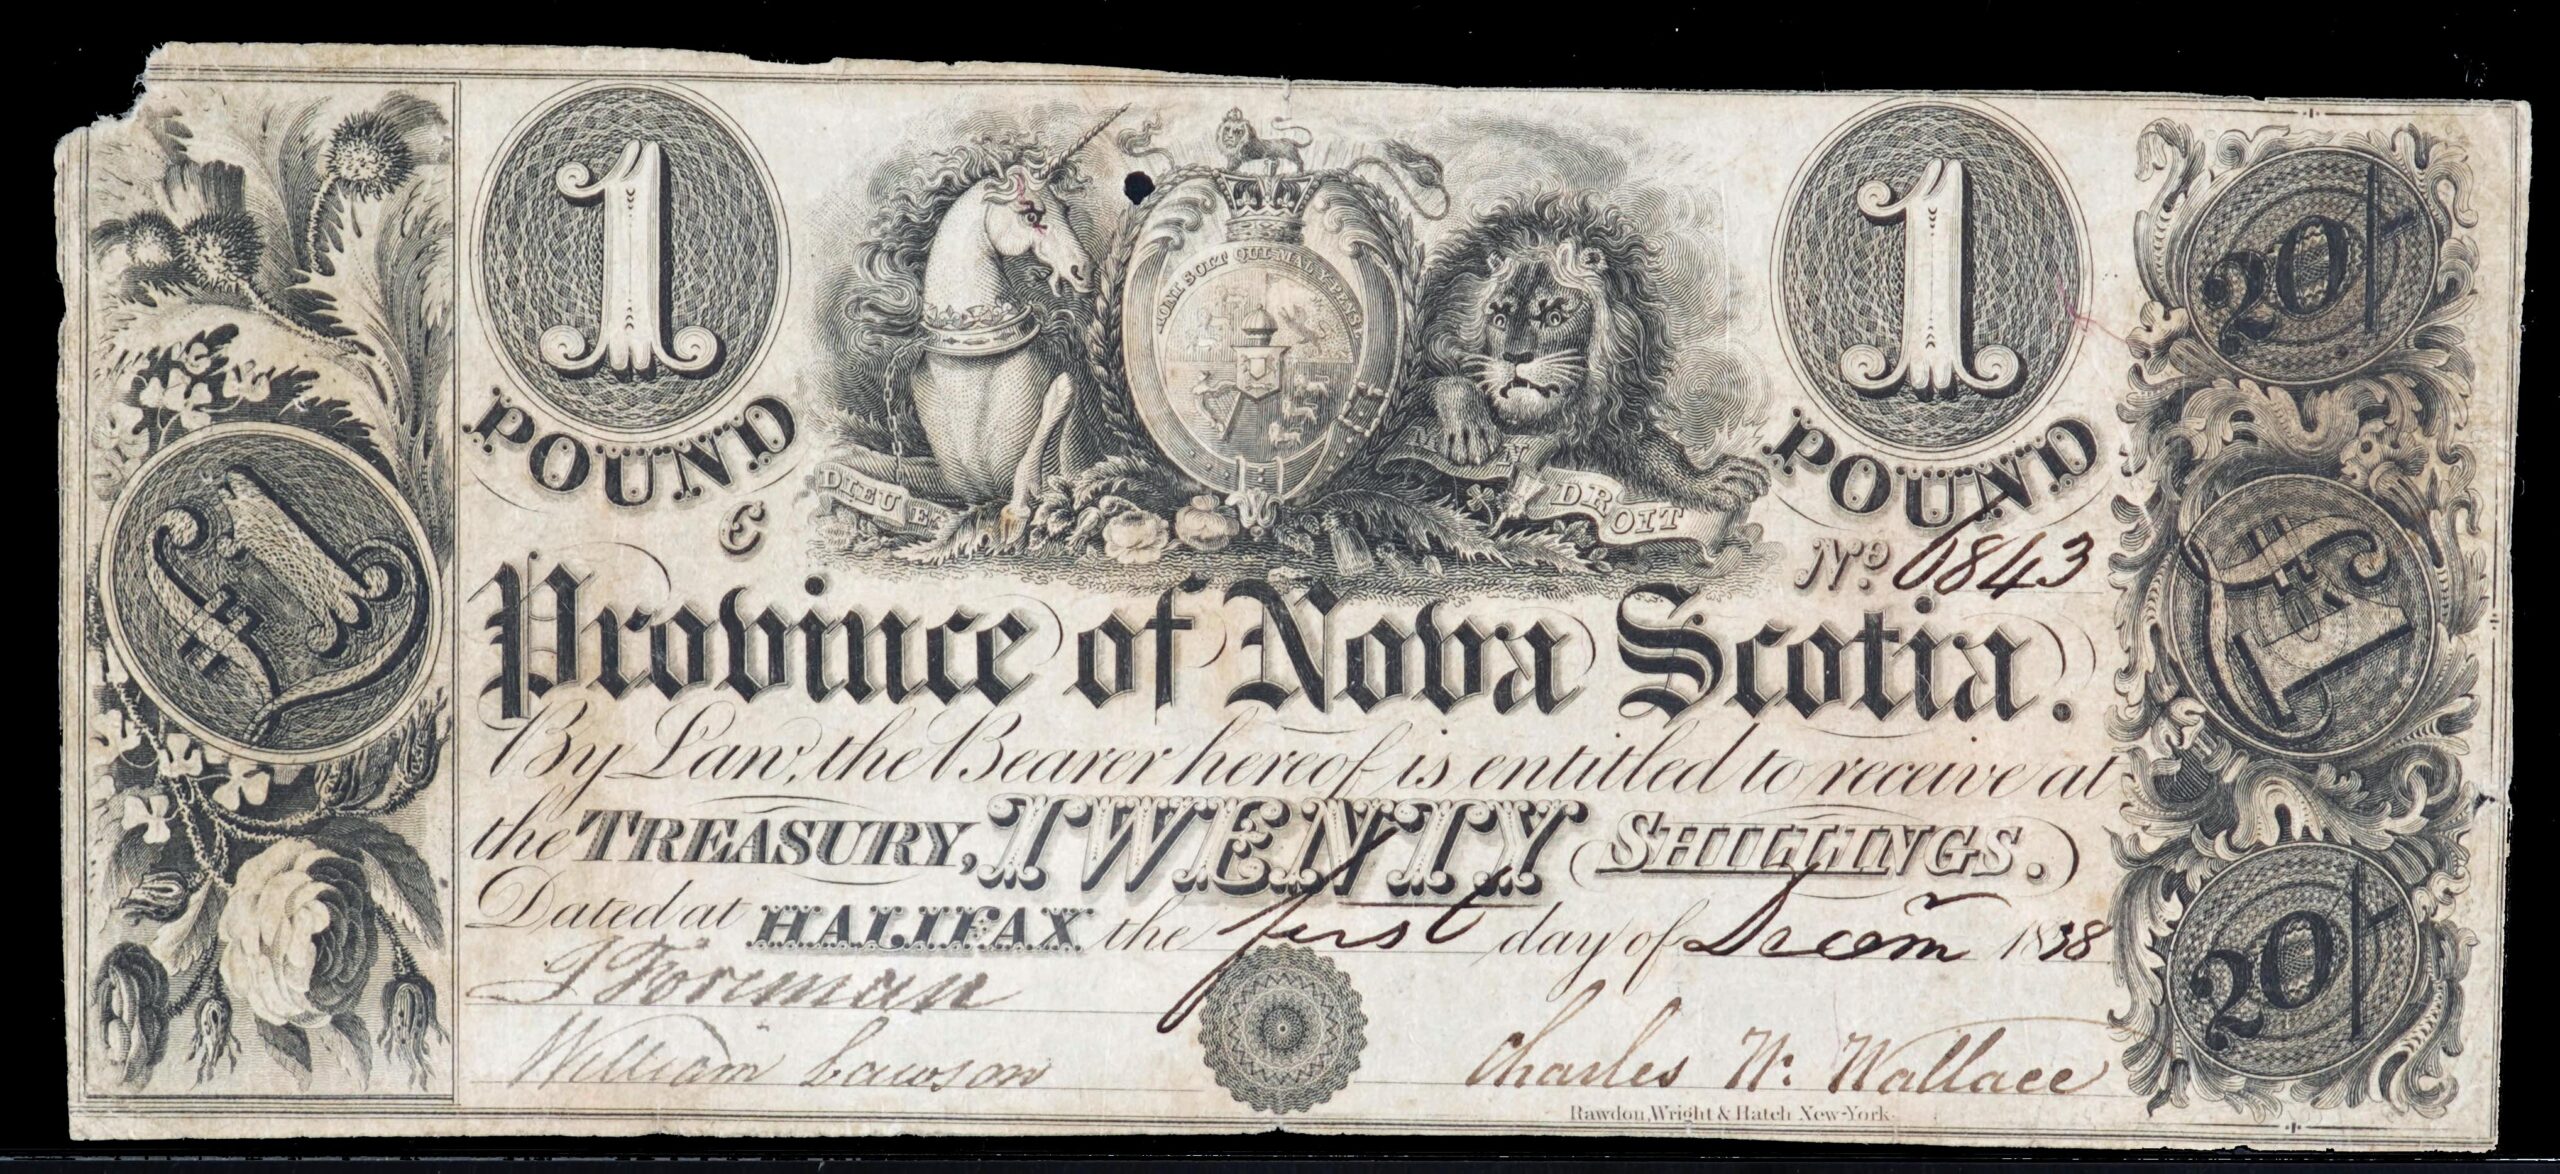 1 1
POUND POUND
20/
HONI SOIT QUI MAL Y PENSE
DIEU ET MON DROIT
C
No. 6843
£1 £1
Province of Nova Scotia.
By Law, the Bearer hereof is entitled to receive at
the TREASURY, TWENTY SHILLINGS.
Dated at HALIFAX the first day of Decem 1838
20/
J Foreman
William Lawson Charles W. Wallace
Rawdon, Wright & Hatch New-York.